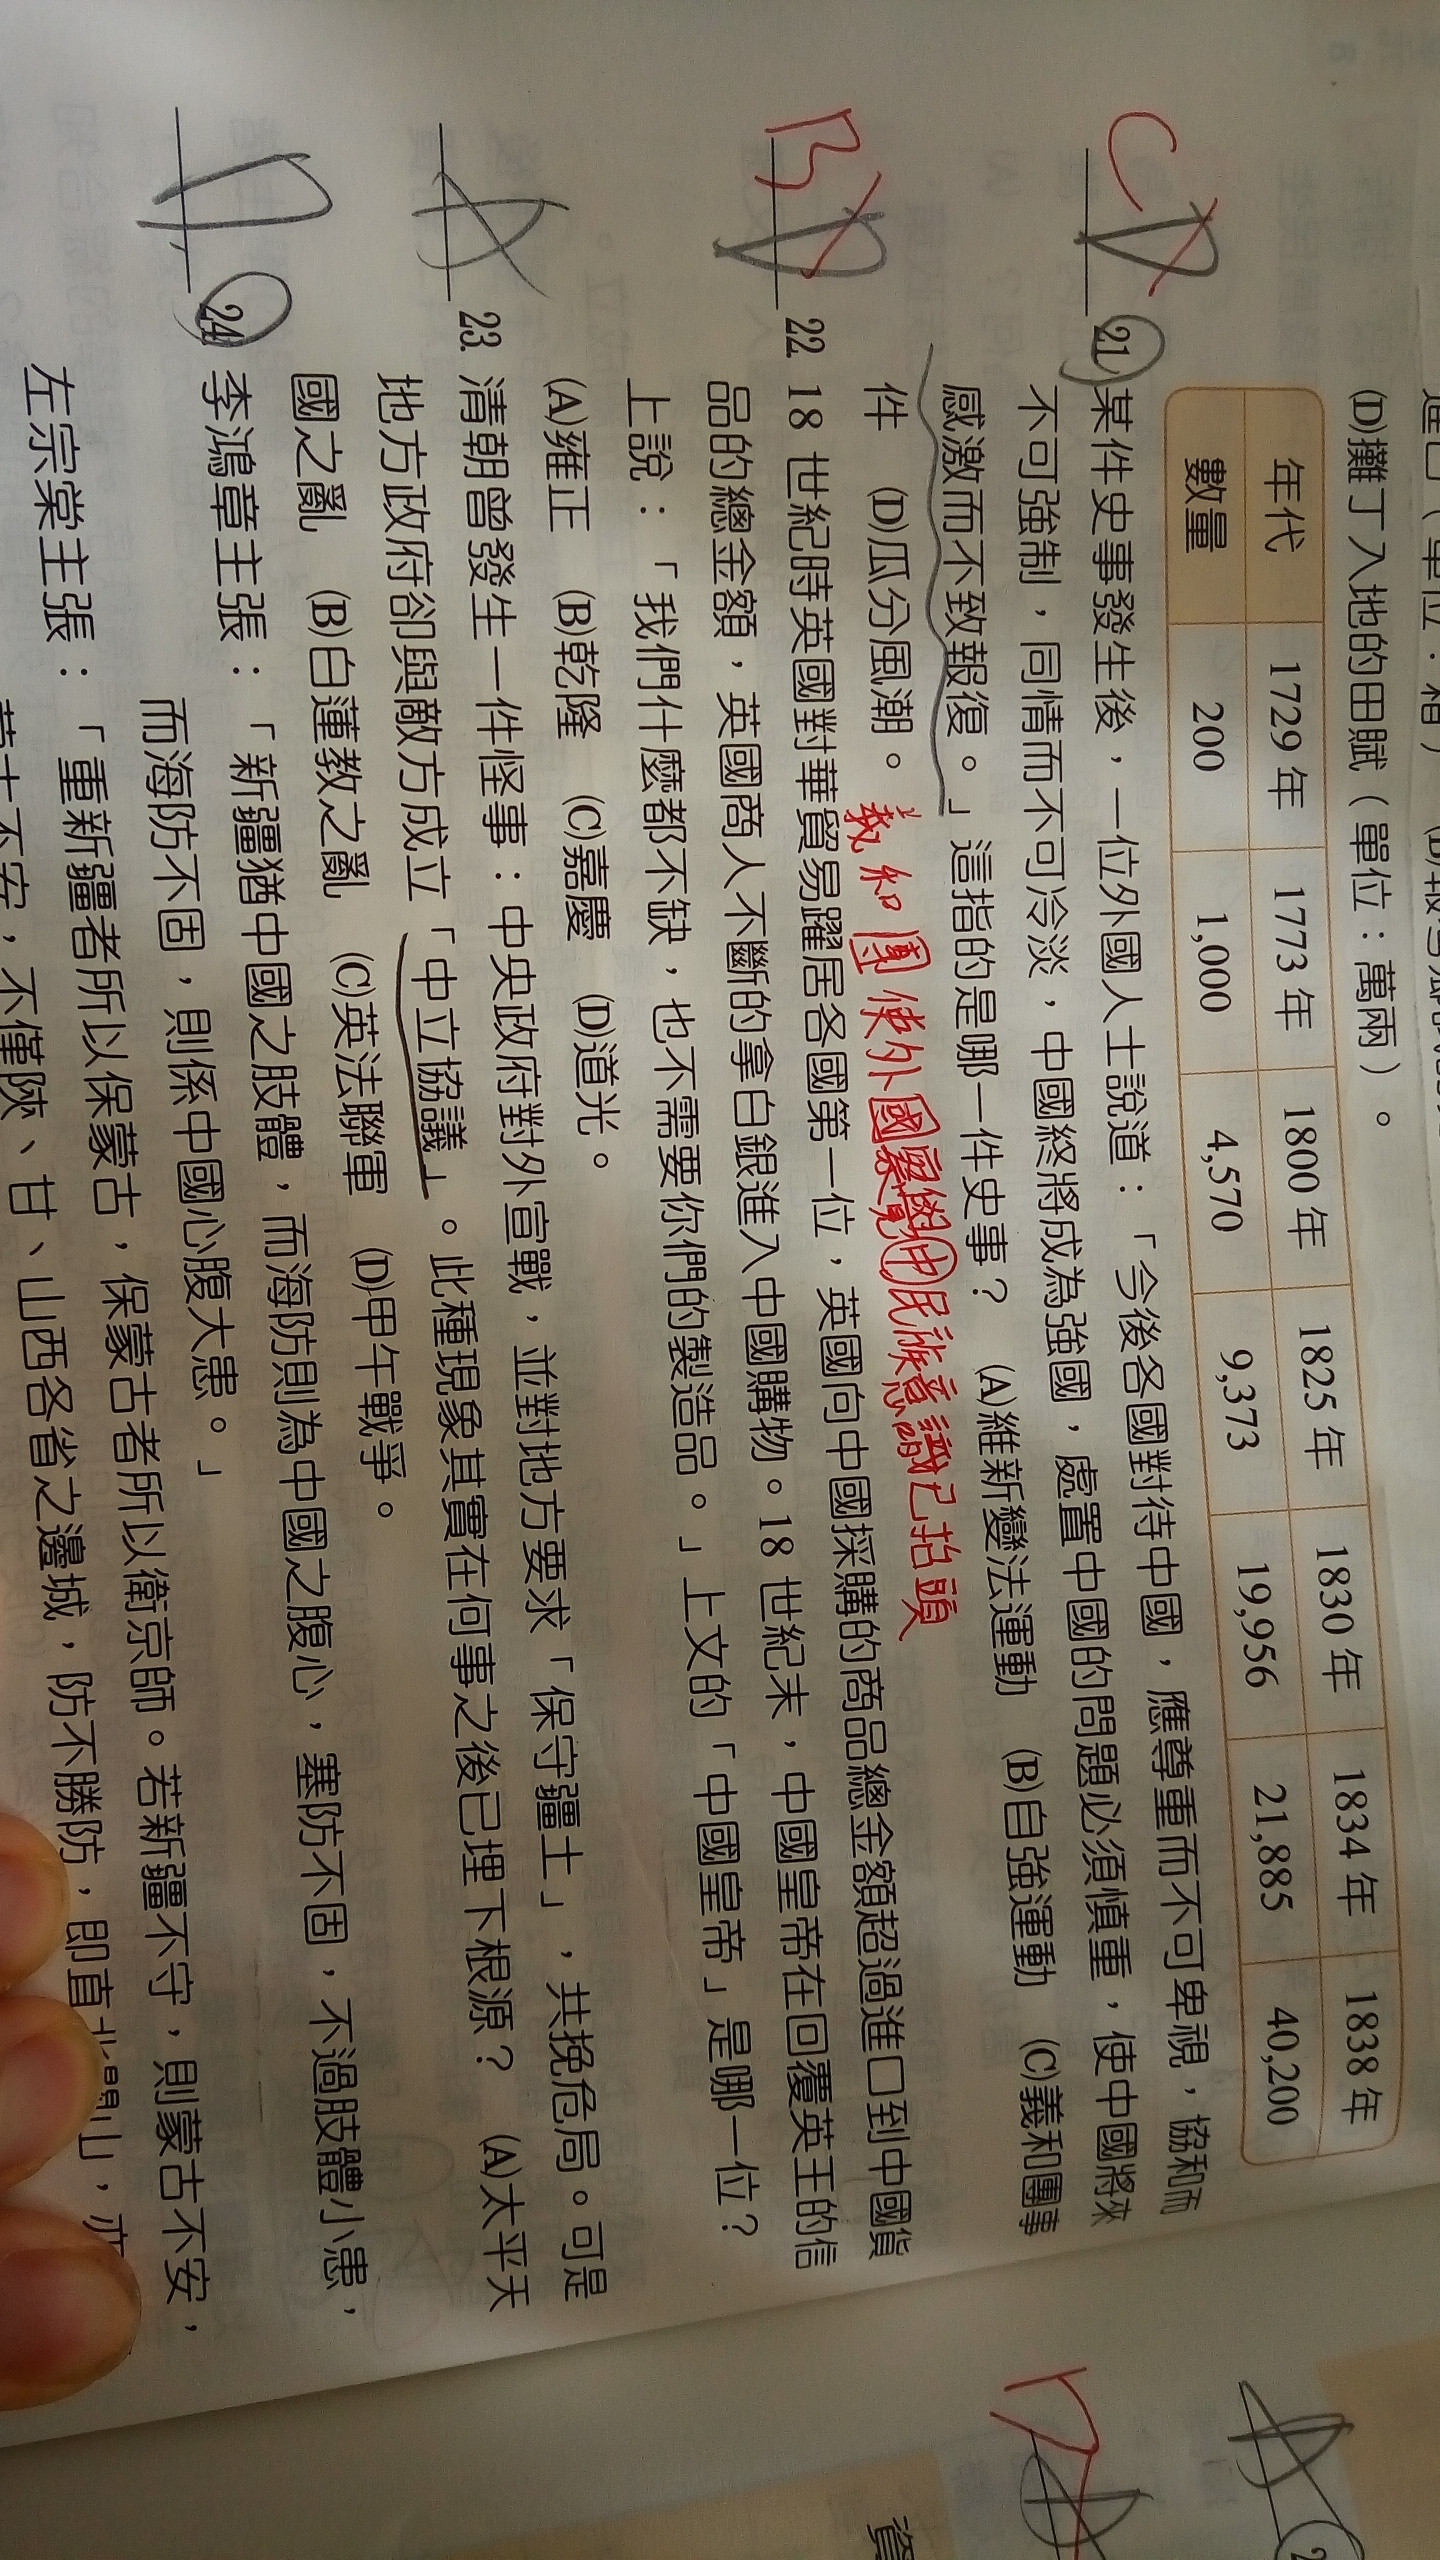 (D)攤丁入地的田賦（單位：萬兩）。
年代 1729 年 1773 年 1800 年 1825 年 1830 年 1834 年 1838 年
數量 200 1,000 4,570 9,373 19,956 21,885 40,200
C D 21. 某件史事發生後，一位外國人士說道：「今後各國對待中國，應尊重而不可卑視，協和而
不可強制，同情而不可冷淡，中國終將成為強國，處置中國的問題必須慎重，使中國將來
感激而不致報復。」這指的是哪一件史事？ (A)維新變法運動 (B)自強運動 (C)義和團事
件 (D)瓜分風潮。
義和團使外國察覺中民族意識已抬頭
B D 22. 18 世紀時英國對華貿易躍居各國第一位，英國向中國採購的商品總金額超過進口到中國貨
品的總金額，英國商人不斷的拿白銀進入中國購物。18 世紀末，中國皇帝在回覆英王的信
上說：「我們什麼都不缺，也不需要你們的製造品。」上文的「中國皇帝」是哪一位？
(A)雍正 (B)乾隆 (C)嘉慶 (D)道光。
A 23. 清朝曾發生一件怪事：中央政府對外宣戰，並對地方要求「保守疆土」，共挽危局。可是
地方政府卻與敵方成立「中立協議」。此種現象其實在何事之後已埋下根源？ (A)太平天
國之亂 (B)白蓮教之亂 (C)英法聯軍 (D)甲午戰爭。
D 24. 李鴻章主張：「新疆猶中國之肢體，而海防則為中國之腹心，塞防不固，不過肢體小患，
而海防不固，則係中國心腹大患。」
左宗棠主張：「重新疆者所以保蒙古，保蒙古者所以衛京師。若新疆不守，則蒙古不安，
不安，不僅陝、甘、山西各省之邊城，防不勝防，即直
A
D
資